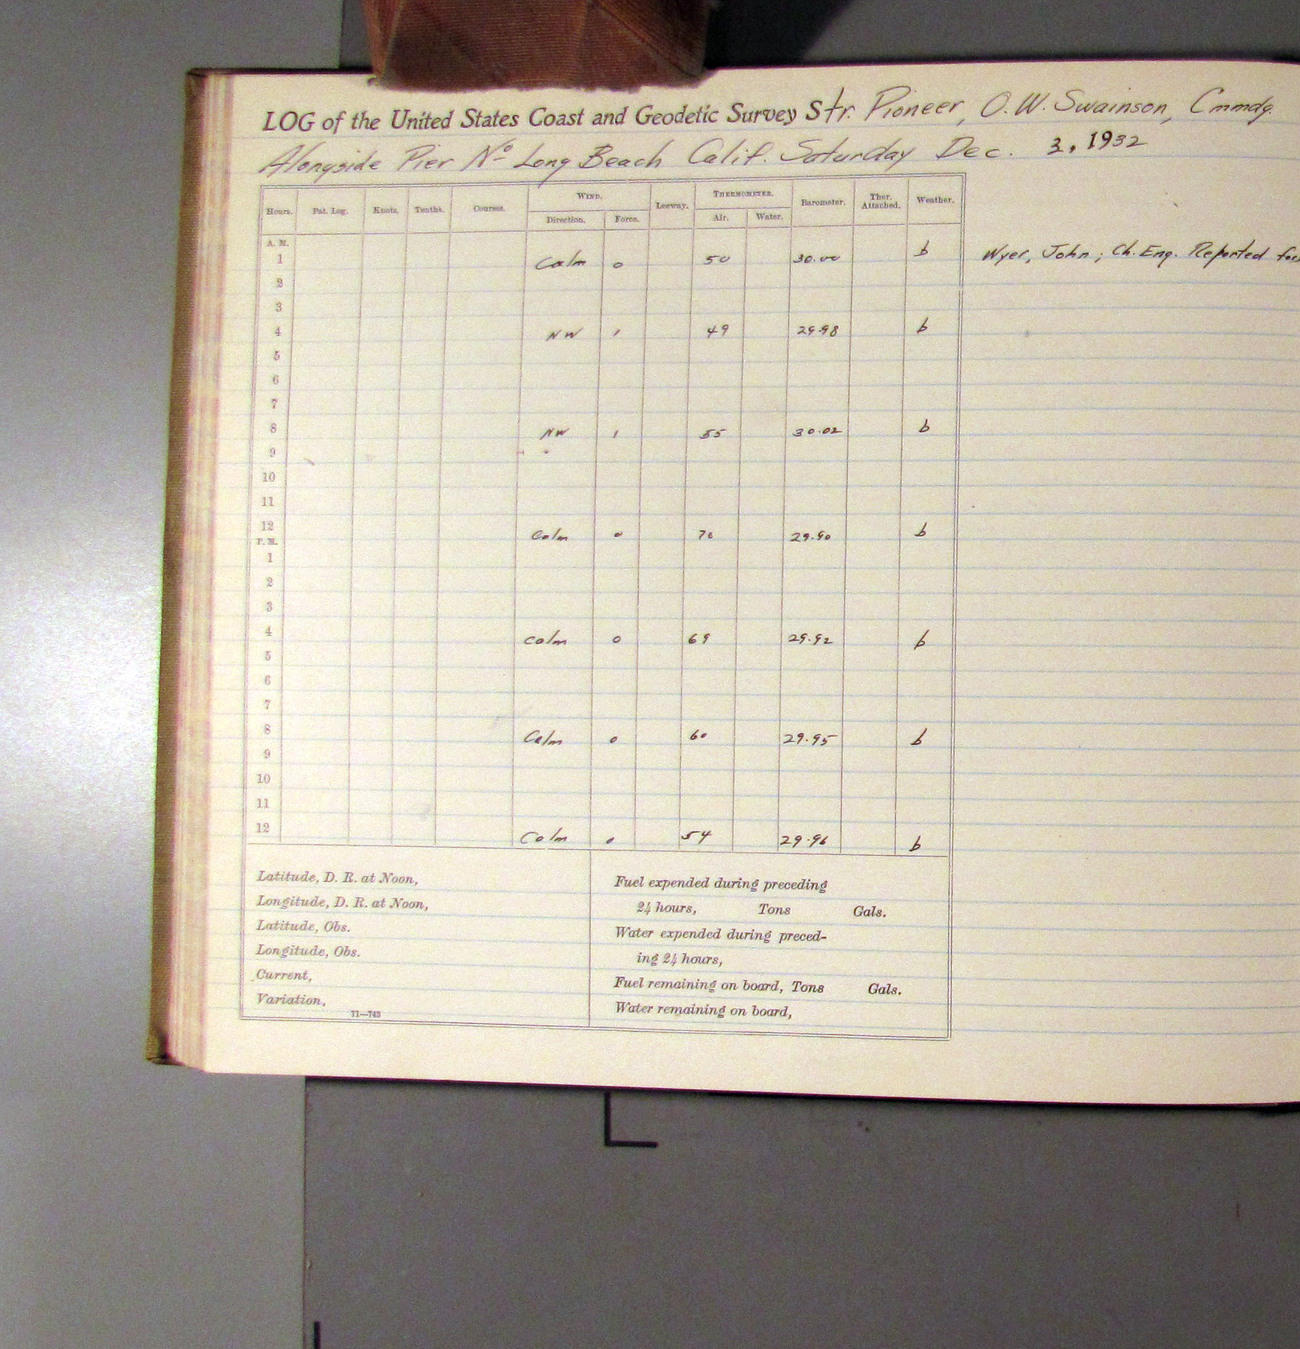 LOG of the United States Coast and Geodetic Survey Str. Pioneer, O. W. Swainson, Cmmdg.
Alongside Pier No Long Beach Calif. Saturday Dec. 3, 1932
Hours. Pat. Log. Knots. Tenths. Courses. WIND. Direction. Force. Leeway. THERMOMETER. Air. Water. Barometer. Ther. Attached. Weather.
A. M.
1 Calm 0 50 30.00 b Wyer, John; Ch. Eng. Reported for
2
3
4 NW 1 49 29.98 b
5
6
7
8 NW 1 55 30.02 b
9
10
11
12 Calm 0 29.90 b
P. M.
1
2
3
4 Calm 0 69 29.92 b
5
6
7
8 Calm 0 60 29.95 b
9
10
11
12 Calm 0 54 29.96 b
Latitude, D. R. at Noon,
Longitude, D. R. at Noon,
Latitude, Obs.
Longitude, Obs.
Current,
Variation,
11—743
Fuel expended during preceding
24 hours, Tons Gals.
Water expended during preced-
ing 24 hours,
Fuel remaining on board, Tons Gals.
Water remaining on board,